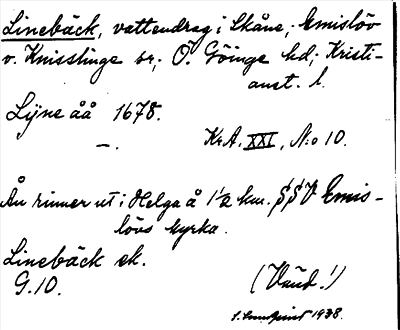 Linebäck, vattendrag i Skåne; Emislöv
v. Knisslinge sn; Ö. Göinge hd; Kristi-
anst. l.
Lijne åå 1678.
—. Kr.A. XXI, N:o 10.
Ån rinner ut i Helga å 1 1/2 km. SSV Emis-
lövs kyrka.
Linebäck ek.
G.10. (Vand.!)
S. Lundquist 1938.